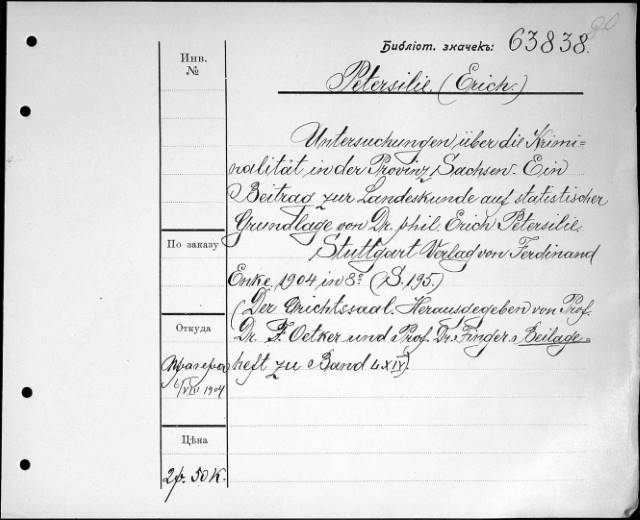 20
Библіот. значекъ: 63838.
Инв.
№
Petersilie (Erich.)
Untersuchungen über die Krimi=
nalität in der Provinz Sachsen. Ein
Beitrag zur Landeskunde auf statistischer
Grundlage von Dr. phil. Erich Petersilie.
Stuttgart Verlag von Ferdinand
Enke. 1904 in 8º (S. 195.)
(Der Grichtssaal. Herausdegeben von Prof.
Dr. F. Oetker und Prof. Dr. Finger. Beilage=
heft zu Band LXIV).
По заказу
Откуда
6/VIII 1904
Цѣна
2р. 50 К.